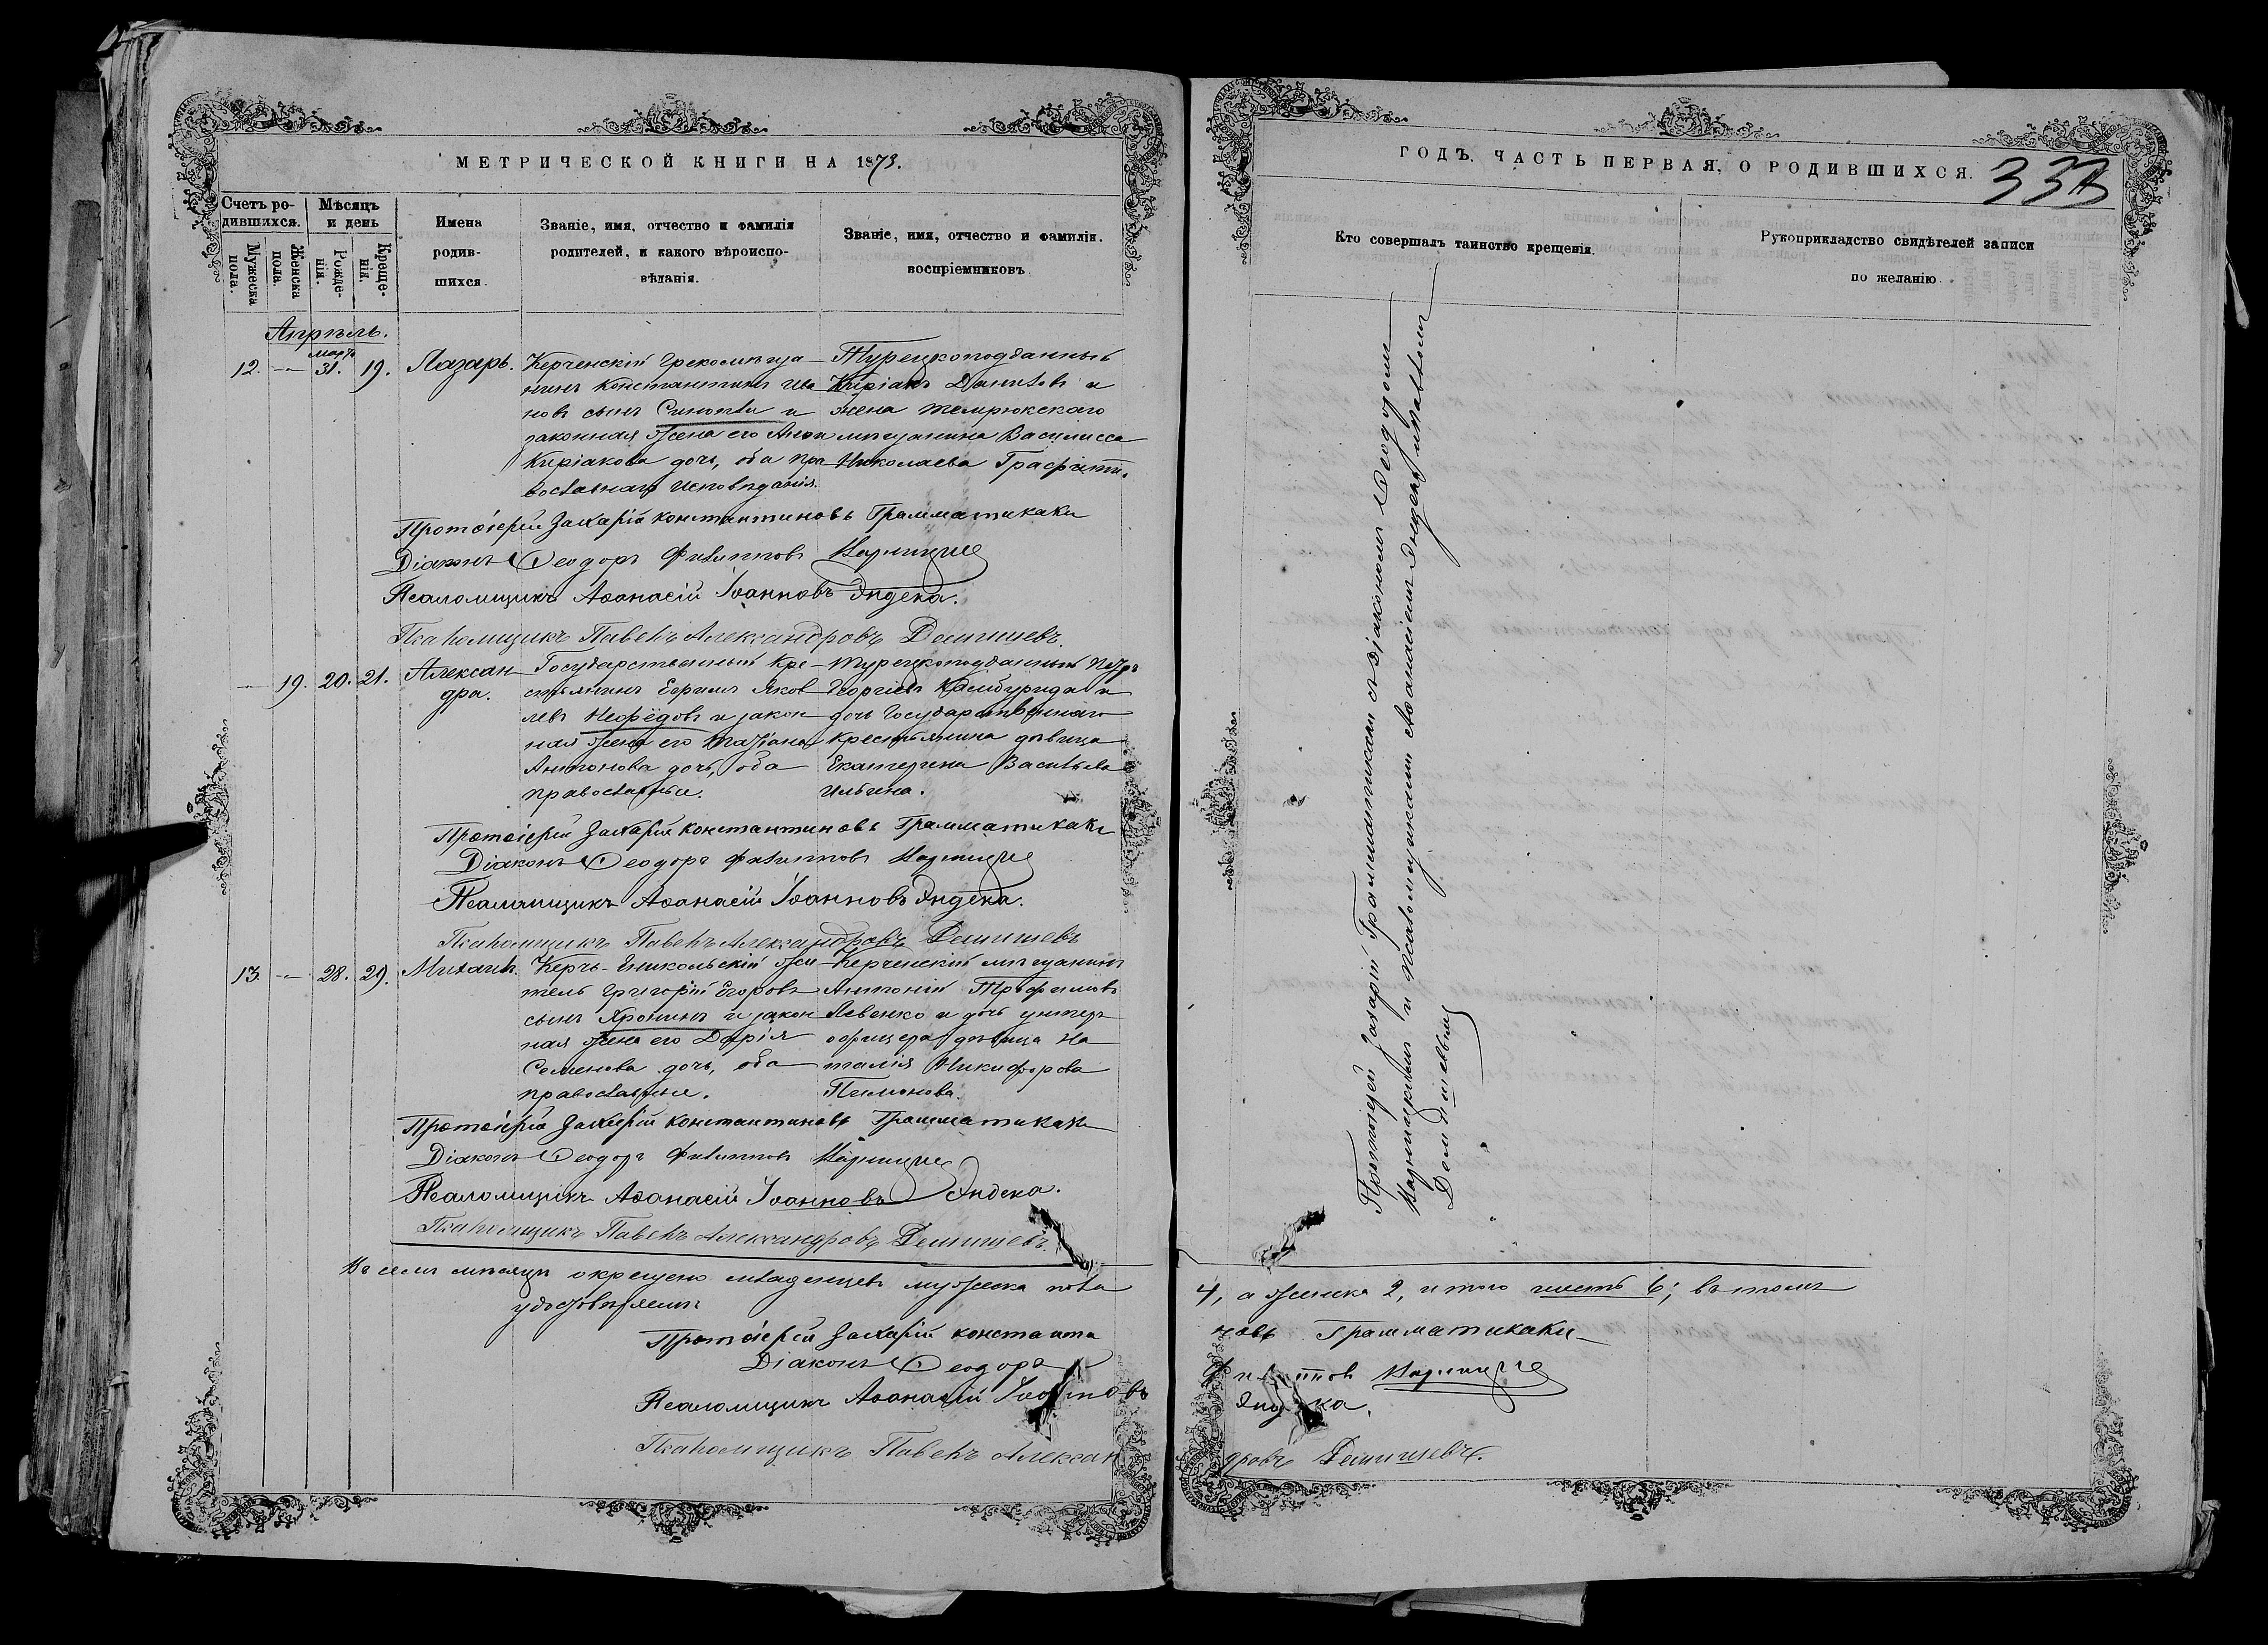 МЕТРИЧЕСКОЙ КНИГИ НА 1873.
Счетъ ро-
дившихся.
Мѣсяцъ
и день
Мужеска
пола.
Женска
пола.
Рожде-
нія.
Креще-
нія.
Имена
родив-
шихся.
Званіе, имя, отчество и фамилія
родителей, и какого вѣроиспо-
вѣданія.
Званіе, имя, отчество и фамилія.
воспріемниковъ
Апрѣль.
12. — Март. 31. 19. Лазарь.
Керченскій Грекомѣща
нинъ Константинъ Ива
новъ сынъ Синопли и
законная жена его
Киріакова дочь, оба пра
вославнаго исповѣданія.
Турецкоподданный
Киріакъ Даниловъ и
жена темрюкскаго
мѣщанина Василисса
Николаева
Протоіерей Захарій Константиновъ Грамматикаки
Діаконъ Ѳеодоръ Филипповъ
Псаломщикъ Аѳанасій Іоанновъ Эндека.
Псаломщикъ Павелъ Александровъ Демишевъ.
— 19. 20. 21. Алексан
дра.
Государственный кре
стьянинъ Ефимъ Яков
левъ Нефёдовъ и закон
ная жена его Татіана
Антонова дочь, оба
православные.
Турецкоподданный Петръ
Георгіевъ и
дочь Государственнаго
крестьянина дѣвица
Екатерина Васильева
Ильина.
Протоіерей Захарій Константиновъ Грамматикаки
Діаконъ Ѳеодоръ Филипповъ
Псаломщикъ Аѳанасій Іоанновъ Эндека.
Псаломщикъ Павелъ Александровъ Демишевъ
13. — 28. 29. Михаилъ.
Керчь-Еникольскій жи
тель Григорій Егоровъ
сынъ Хронинъ и закон
ная жена его Дарія
Семенова дочь, оба
православные.
Керченскій мѣщанинъ
Антоній Трофимовъ
Левенко и дочь унтеръ
офицера дѣвица На
талія Никифорова
Пимонова.
Протоіерей Захарій Константиновъ Грамматикаки
Діаконъ Ѳеодоръ Филипповъ
Псаломщикъ Аѳанасій Іоанновъ Эндека.
Псаломщикъ Павелъ Александровъ Демишевъ.
Въ семъ мѣсяцѣ окрещено младенцевъ мужеска пола
удостовѣряемъ
Протоіерей Захарій Константи
Діаконъ Ѳеодоръ
Псаломщикъ Аѳанасій Іоанновъ
Псаломщикъ Павелъ Алексан
ГОДЪ. ЧАСТЬ ПЕРВАЯ, О РОДИВШИХСЯ.
Кто совершалъ таинство крещенія.
Рукоприкладство свидѣтелей записи
по желанію
Протоіерей Захарій Грамматикаки съ діакономъ Ѳеодоромъ
и псаломщиками Аѳанасіемъ Эндекою и Павломъ
Демишевымъ
4, а женска 2, итого шесть 6; въ томъ
новъ Грамматикаки
Филипповъ
Эндека.
дровъ Демишевъ.